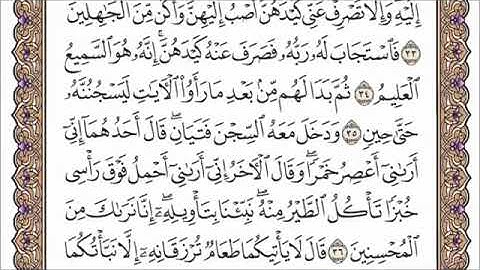 إِلَيْهِ وَإِلَّا تَصْرِفْ عَنِّي كَيْدَهُنَّ أَصْبُ إِلَيْهِنَّ وَأَكُن مِّنَ ٱلْجَٰهِلِينَ
٣٣ فَٱسْتَجَابَ لَهُۥ رَبُّهُۥ فَصَرَفَ عَنْهُ كَيْدَهُنَّ ۚ إِنَّهُۥ هُوَ ٱلسَّمِيعُ
ٱلْعَلِيمُ ٣٤ ثُمَّ بَدَا لَهُم مِّنۢ بَعْدِ مَا رَأَوُا۟ ٱلْءَايَٰتِ لَيَسْجُنُنَّهُۥ
حَتَّىٰ حِينٍ ٣٥ وَدَخَلَ مَعَهُ ٱلسِّجْنَ فَتَيَانِ ۖ قَالَ أَحَدُهُمَآ إِنِّىٓ
أَرَىٰنِىٓ أَعْصِرُ خَمْرًا ۖ وَقَالَ ٱلْءَاخَرُ إِنِّىٓ أَرَىٰنِىٓ أَحْمِلُ فَوْقَ رَأْسِى
خُبْزًا تَأْكُلُ ٱلطَّيْرُ مِنْهُ ۖ نَبِّئْنَا بِتَأْوِيلِهِۦٓ ۖ إِنَّا نَرَىٰكَ مِنَ
ٱلْمُحْسِنِينَ ٣٦ قَالَ لَا يَأْتِيكُمَا طَعَامٌ تُرْزَقَانِهِۦٓ إِلَّا نَبَّأْتُكُمَا